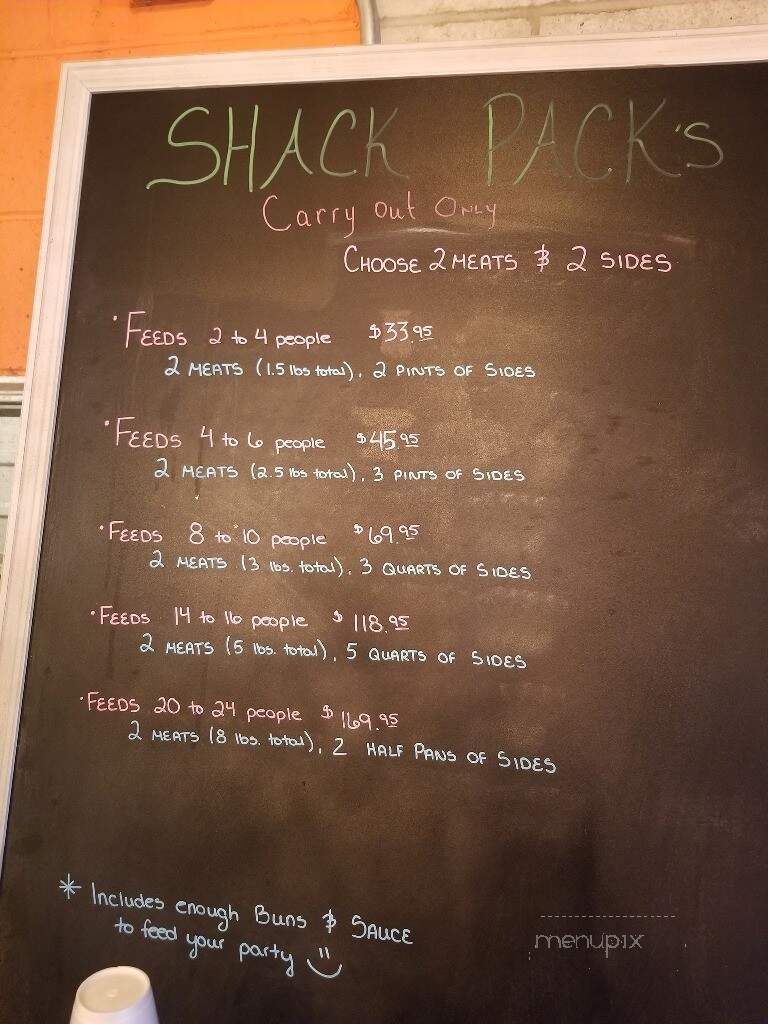 SHACK PACK'S
Carry Out Only
CHOOSE 2 MEATS & 2 SIDES
• FEEDS 2 to 4 people $33.95
2 MEATS (1.5 lbs total), 2 PINTS OF SIDES
• FEEDS 4 to 6 people $45.95
2 MEATS (2.5 lbs total), 3 PINTS OF SIDES
• FEEDS 8 to 10 people $69.95
2 MEATS (3 lbs. total), 3 QUARTS OF SIDES
• FEEDS 14 to 16 people $118.95
2 MEATS (5 lbs. total), 5 QUARTS OF SIDES
• FEEDS 20 to 24 people $169.95
2 MEATS (8 lbs. total), 2 HALF PANS OF SIDES
* Includes enough Buns & SAUCE
to feed your party
menupix